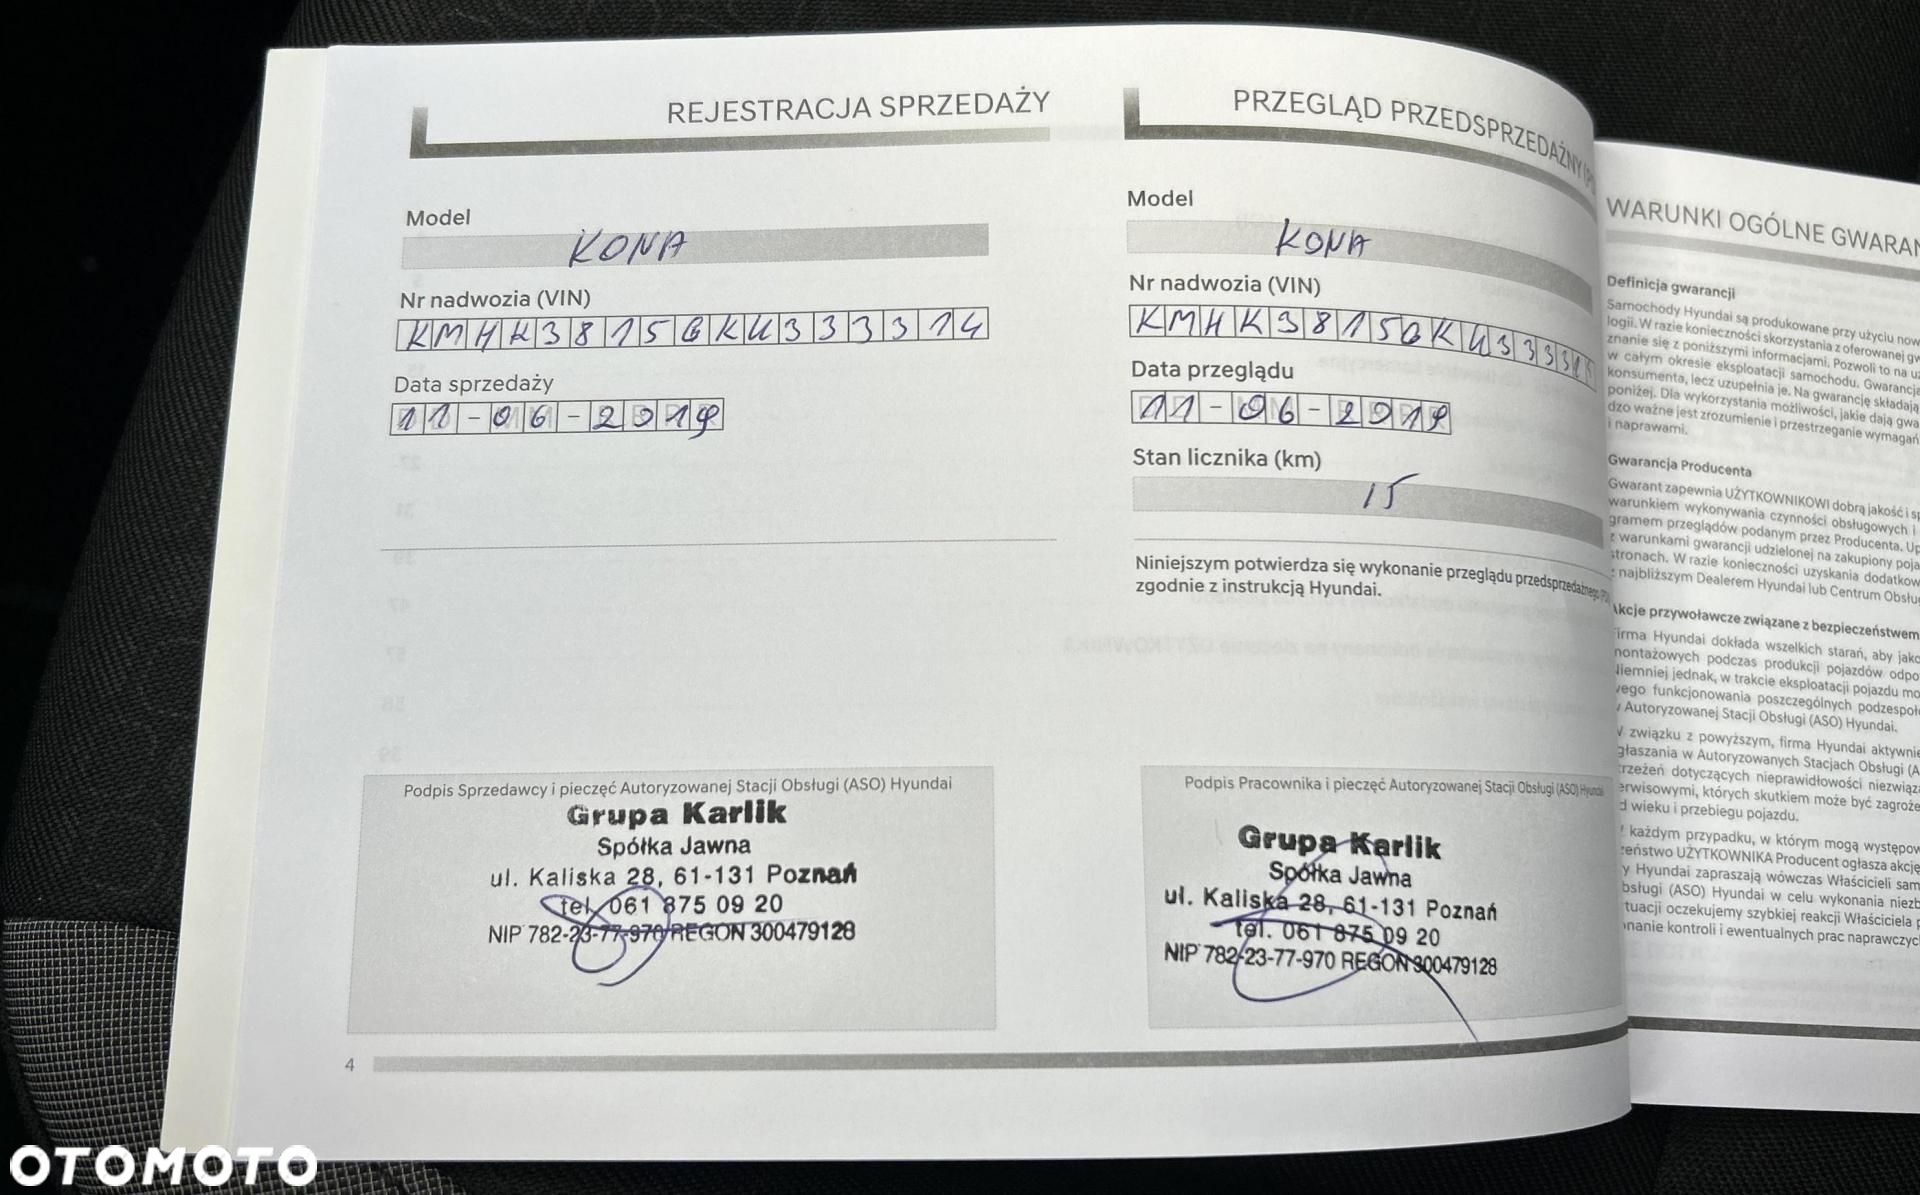 REJESTRACJA SPRZEDAŻY
Model
KONA
Nr nadwozia (VIN)
KMHK3815GKU333314
Data sprzedaży
11-06-2019
Podpis Sprzedawcy i pieczęć Autoryzowanej Stacji Obsługi (ASO) Hyundai
Grupa Karlik
Spółka Jawna
ul. Kaliska 28, 61-131 Poznań
tel. 061 875 09 20
NIP 782-23-77-970 REGON 300479128
4
PRZEGLĄD PRZEDSPRZEDAŻNY
Model
KONA
Nr nadwozia (VIN)
KMHK3815GKU3333
Data przeglądu
11-06-2019
Stan licznika (km)
15
Niniejszym potwierdza się wykonanie przeglądu przedsprzedażnego
zgodnie z instrukcją Hyundai.
Podpis Pracownika i pieczęć Autoryzowanej Stacji Obsługi (ASO) Hyundai
Grupa Karlik
Spółka Jawna
ul. Kaliska 28, 61-131 Poznań
tel. 061 875 09 20
NIP 782-23-77-970 REGON 300479128
WARUNKI OGÓLNE GWARAN
Definicja gwarancji
Samochody Hyundai są produkowane przy użyciu now
logii. W razie konieczności skorzystania z oferowanej gw
znanie się z poniższymi informacjami. Pozwoli to na u
w całym okresie eksploatacji samochodu. Gwarancja
konsumenta, lecz uzupełnia je. Na gwarancję składają
poniżej. Dla wykorzystania możliwości, jakie dają gwa
dzo ważne jest zrozumienie i przestrzeganie wymagań
i naprawami.
Gwarancja Producenta
Gwarant zapewnia UŻYTKOWNIKOWI dobrą jakość i s
warunkiem wykonywania czynności obsługowych i
gramem przeglądów podanym przez Producenta. Up
z warunkami gwarancji udzielonej na zakupiony poja
stronach. W razie konieczności uzyskania dodatkow
z najbliższym Dealerem Hyundai lub Centrum Obsłu
Akcje przywoławcze związane z bezpieczeństwem
Firma Hyundai dokłada wszelkich starań, aby jako
montażowych podczas produkcji pojazdów odpo
Niemniej jednak, w trakcie eksploatacji pojazdu mo
wego funkcjonowania poszczególnych podzespoł
w Autoryzowanej Stacji Obsługi (ASO) Hyundai.
W związku z powyższym, firma Hyundai aktywnie
głaszania w Autoryzowanych Stacjach Obsługi (A
rzeżeń dotyczących nieprawidłowości niezwiąz
erwisowymi, których skutkiem może być zagroże
d wieku i przebiegu pojazdu.
każdym przypadku, w którym mogą występow
zeństwo UŻYTKOWNIKA Producent ogłasza akcję
y Hyundai zapraszają wówczas Właścicieli sam
bsługi (ASO) Hyundai w celu wykonania niezb
tuacji oczekujemy szybkiej reakcji Właściciela p
nanie kontroli i ewentualnych prac naprawczyc
OTOMOTO